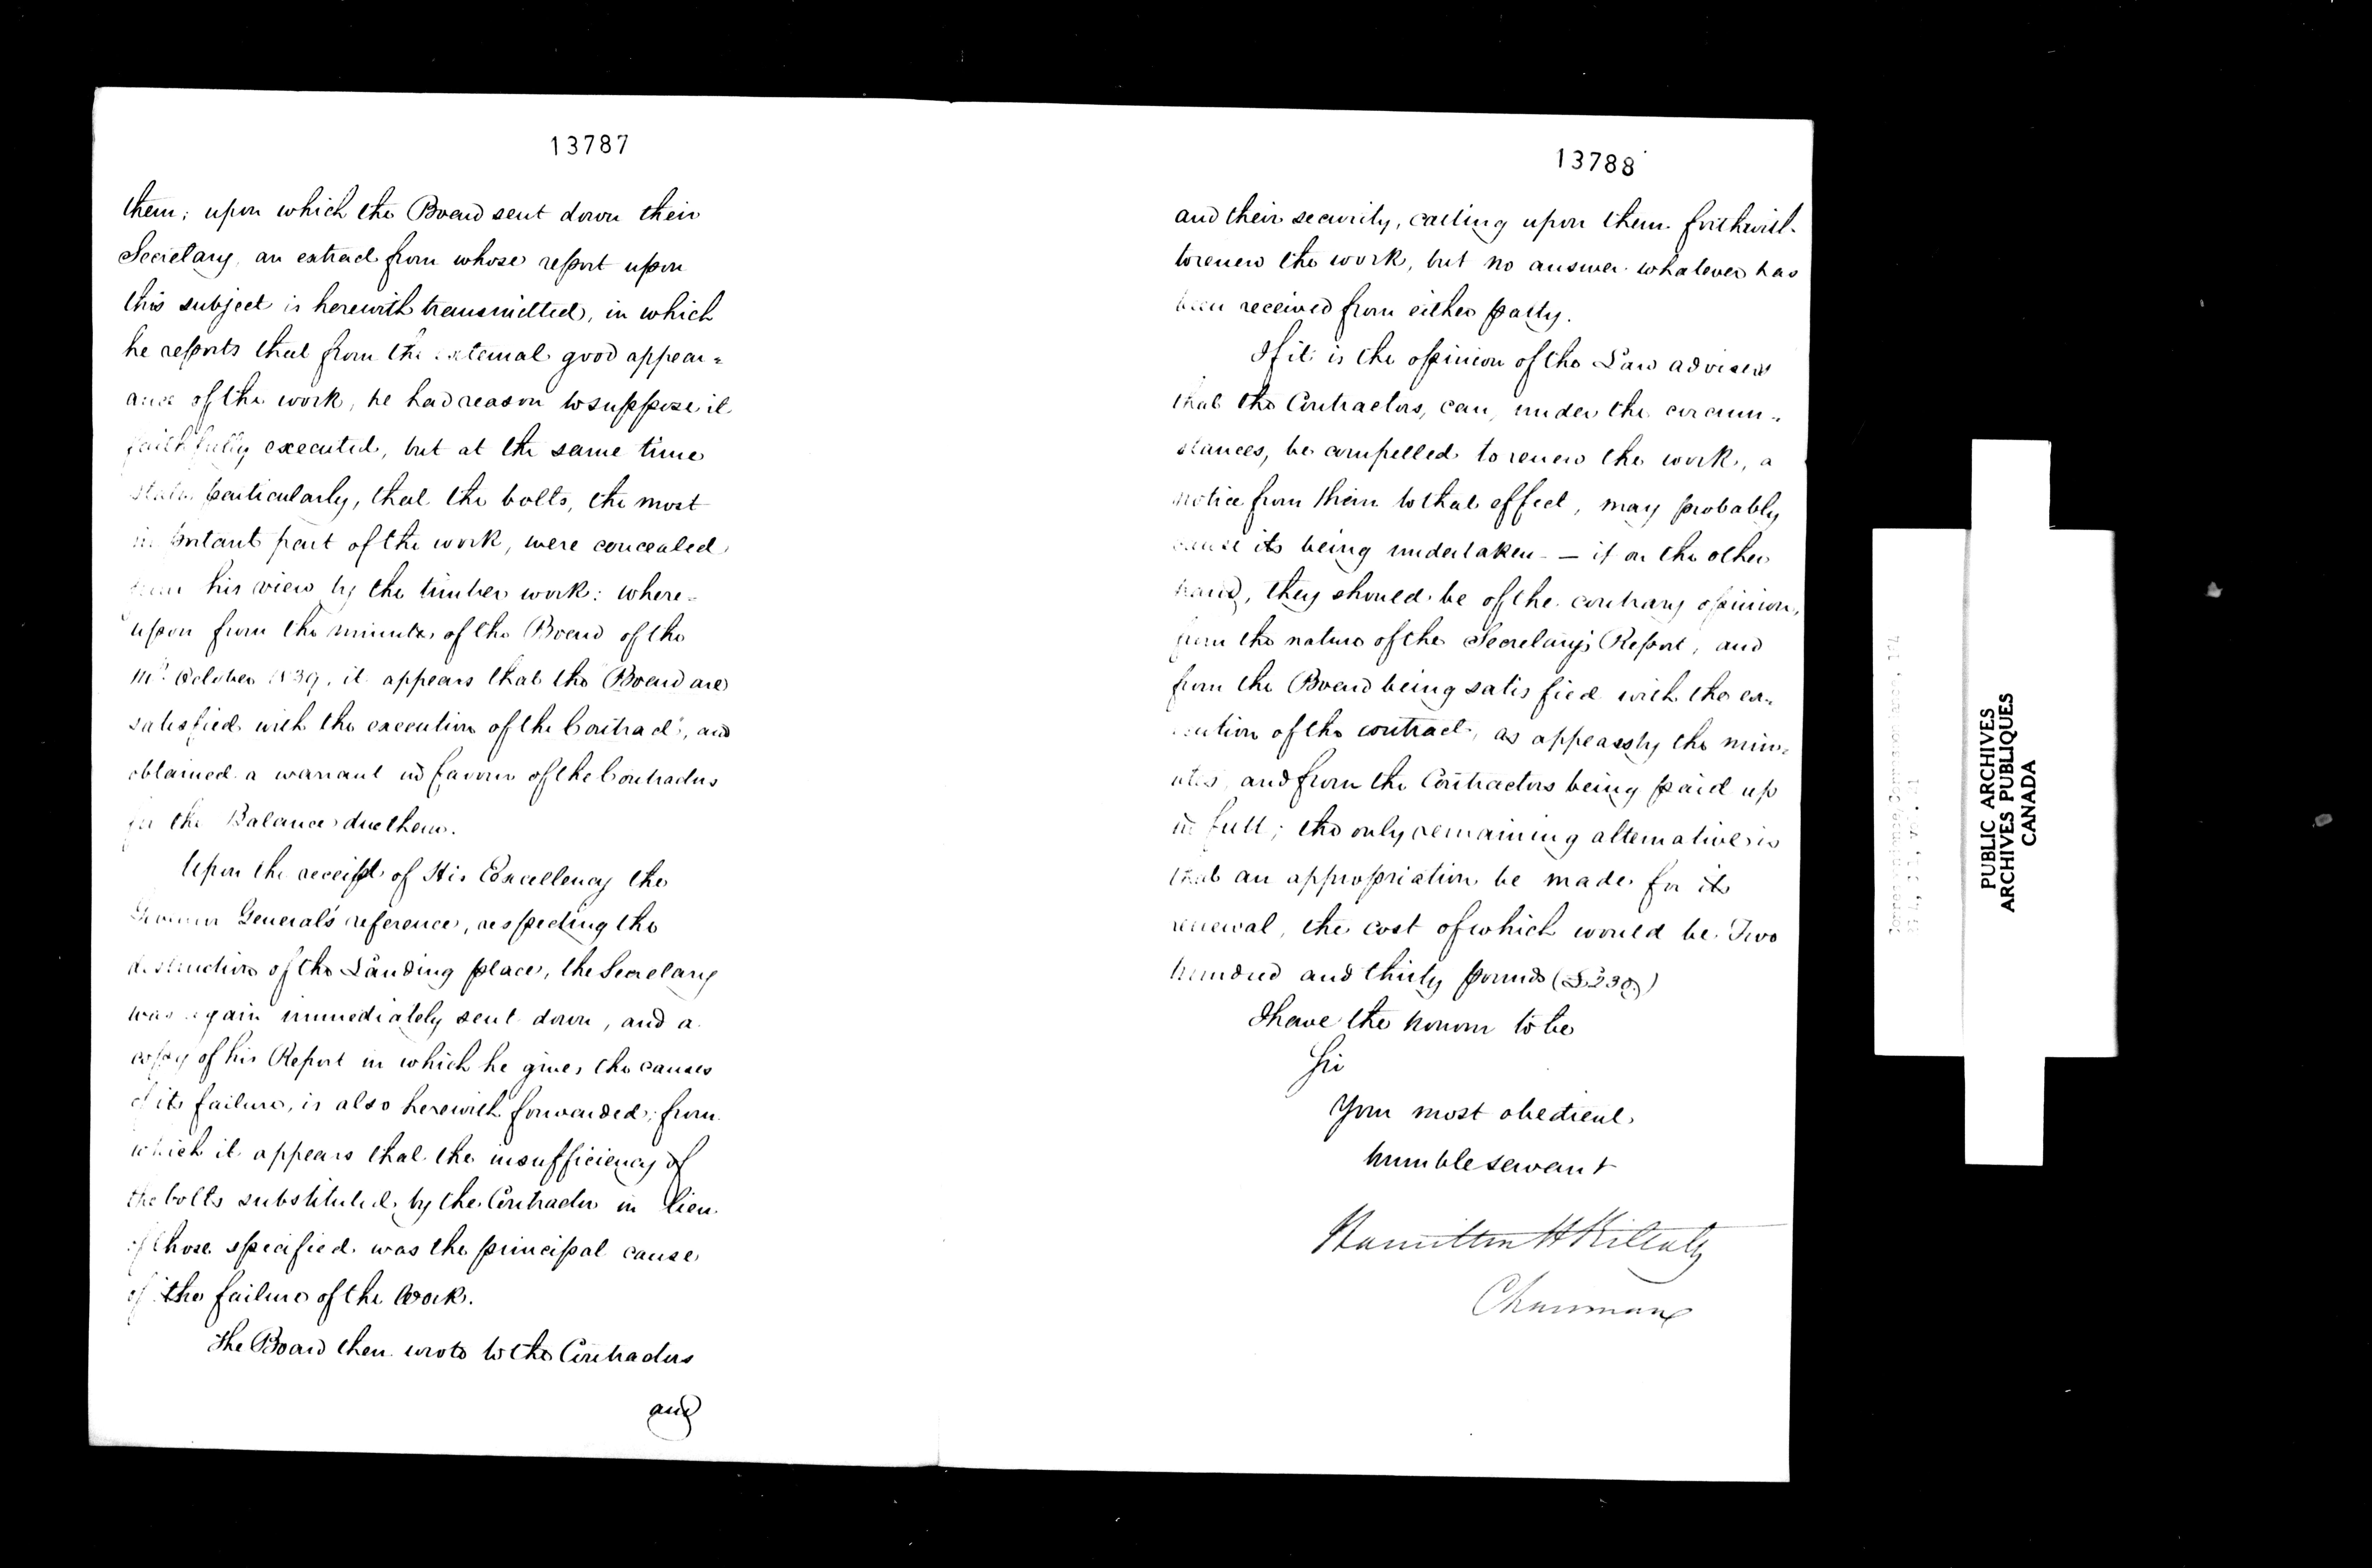 13787
them; upon which the Board sent down their
Secretary, an extract from whose report upon
this subject is herewith transmitted, in which
he reports that from the external good appear=
ance of the work, he had reason to suppose it
faithfully executed, but at the same time
states particularly, that the bolts, the most
important part of the work, were concealed
from his view by the timber work: where=
upon from the minutes of the Board of the
October 1839, it appears that the Board are
satisfied with the execution of the Contract, and
obtained a warrant in favour of the Contractors
for the Balance due them.
Upon the receipt of His Excellency the
Governor General's reference, respecting the
destruction of the Landing place, the Secretary
was again immediately sent down, and a
copy of his Report in which he gives the causes
of its failure, is also herewith forwarded; from
which it appears that the insufficiency of
the bolts substituted by the Contractor in lieu
of those specified was the principal cause
of the failure of the Work.
The Board then wrote to the Contractors
and
13788
and their security, calling upon them forthwith
to renew the work, but no answer whatever has
been received from either party.
If it is the opinion of the Law advisers
that the Contractors, can, under the circum=
stances, be compelled to renew the work, a
notice from them to that effect, may probably
cause its being undertaken — if on the other
hand, they should be of the contrary opinion,
from the nature of the Secretary's Report, and
from the Board being satisfied with the ex=
ecution of the contract, as appears by the min=
utes, and from the Contractors being paid up
in full; the only remaining alternative is
that an appropriation be made for its
renewal, the cost of which would be Two
hundred and thirty pounds (£230.)
I have the honour to be
Sir
Your most obedient
humble servant
Hamilton H Killaly
Chairman
PUBLIC ARCHIVES
ARCHIVES PUBLIQUES
CANADA